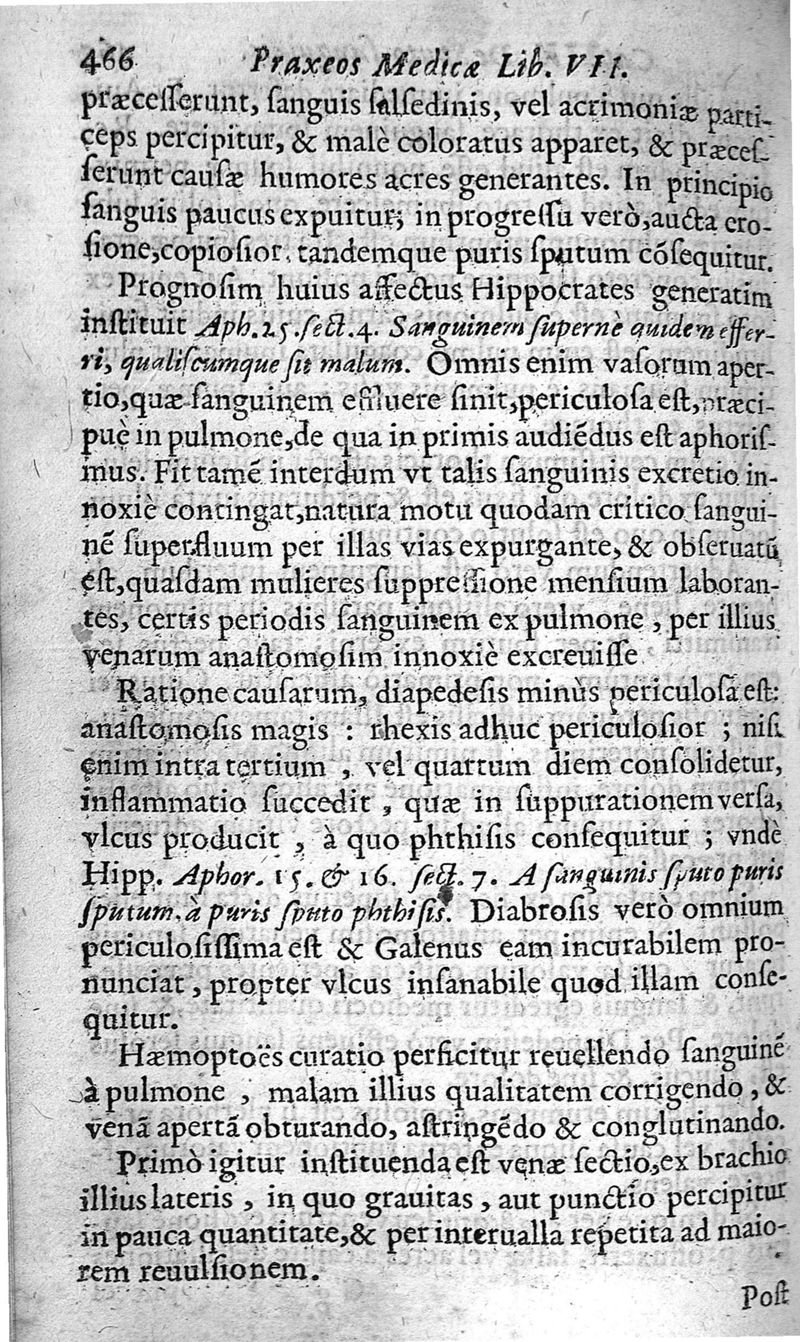 466 Praxeos Medicæ Lib. VII.
præcesserunt, sanguis salsedinis, vel acrimoniæ parti-
ceps percipitur, & malè coloratus apparet, & præces-
serunt causæ humores acres generantes. In principio
sanguis paucus expuitur; in progressu verò, aucta ero-
sione, copiosior, tandemque puris sputum cõsequitur.
Prognosim huius affectus Hippocrates generatim
instituit Aph. 25. sect. 4. Sanguinem supernè quidem effer-
ri, qualiscumque sit malum. Omnis enim vasorum aper-
tio, quæ sanguinem effluere sinit, periculosa est, præci-
puè in pulmone, de qua in primis audiẽdus est aphoris-
mus. Fit tamẽ interdum vt talis sanguinis excretio in-
noxiè contingat, natura motu quodam critico sangui-
nẽ superfluum per illas vias expurgante, & obseruatũ
est, quasdam mulieres suppressione mensium laboran-
tes, certis periodis sanguinem ex pulmone, per illius
venarum anastomosim innoxiè excreuisse
Ratione causarum, diapedesis minùs periculosa est:
anastomosis magis : rhexis adhuc periculosior ; nisi
enim intra tertium , vel quartum diem consolidetur,
inflammatio succedit , quæ in suppurationem versa,
vlcus producit , à quo phthisis consequitur ; vndè
Hipp. Aphor. 15. & 16. sect. 7. A sanguinis sputo puris
sputum, à puris sputo phthisis. Diabrosis verò omnium
periculosissima est & Galenus eam incurabilem pro-
nunciat, propter vlcus insanabile quod illam conse-
quitur.
Hæmoptoës curatio perficitur reuellendo sanguinẽ
à pulmone , malam illius qualitatem corrigendo, &
venã apertã obturando, astringẽdo & conglutinando.
Primò igitur instituenda est venæ sectio, ex brachio
illius lateris , in quo grauitas , aut punctio percipitur
in pauca quantitate, & per interualla repetita ad maio-
rem reuulsionem.
Post